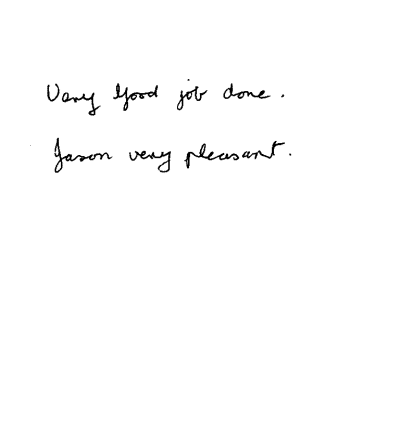 Very Good job done.
Jason very pleasant.